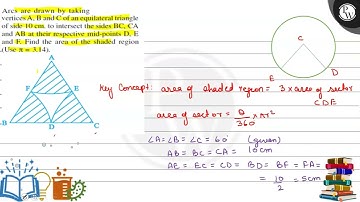 Arcs are drawn by taking
vertices A, B and C of an equilateral triangle
of side 10 cm. to intersect the sides BC, CA
and AB at their respective mid-points D, E
and F. Find the area of the shaded region
(Use π = 3.14).
A
F
E
B
D
C
C
E
D
Key Concept: area of shaded region = 3 × area of sector
CDE
area of sector = θ/360 × πr²
∠A = ∠B = ∠C = 60° (given)
AB = BC = CA = 10cm
AE = EC = CD = BD = BF = FA =
= 10/2 = 5cm